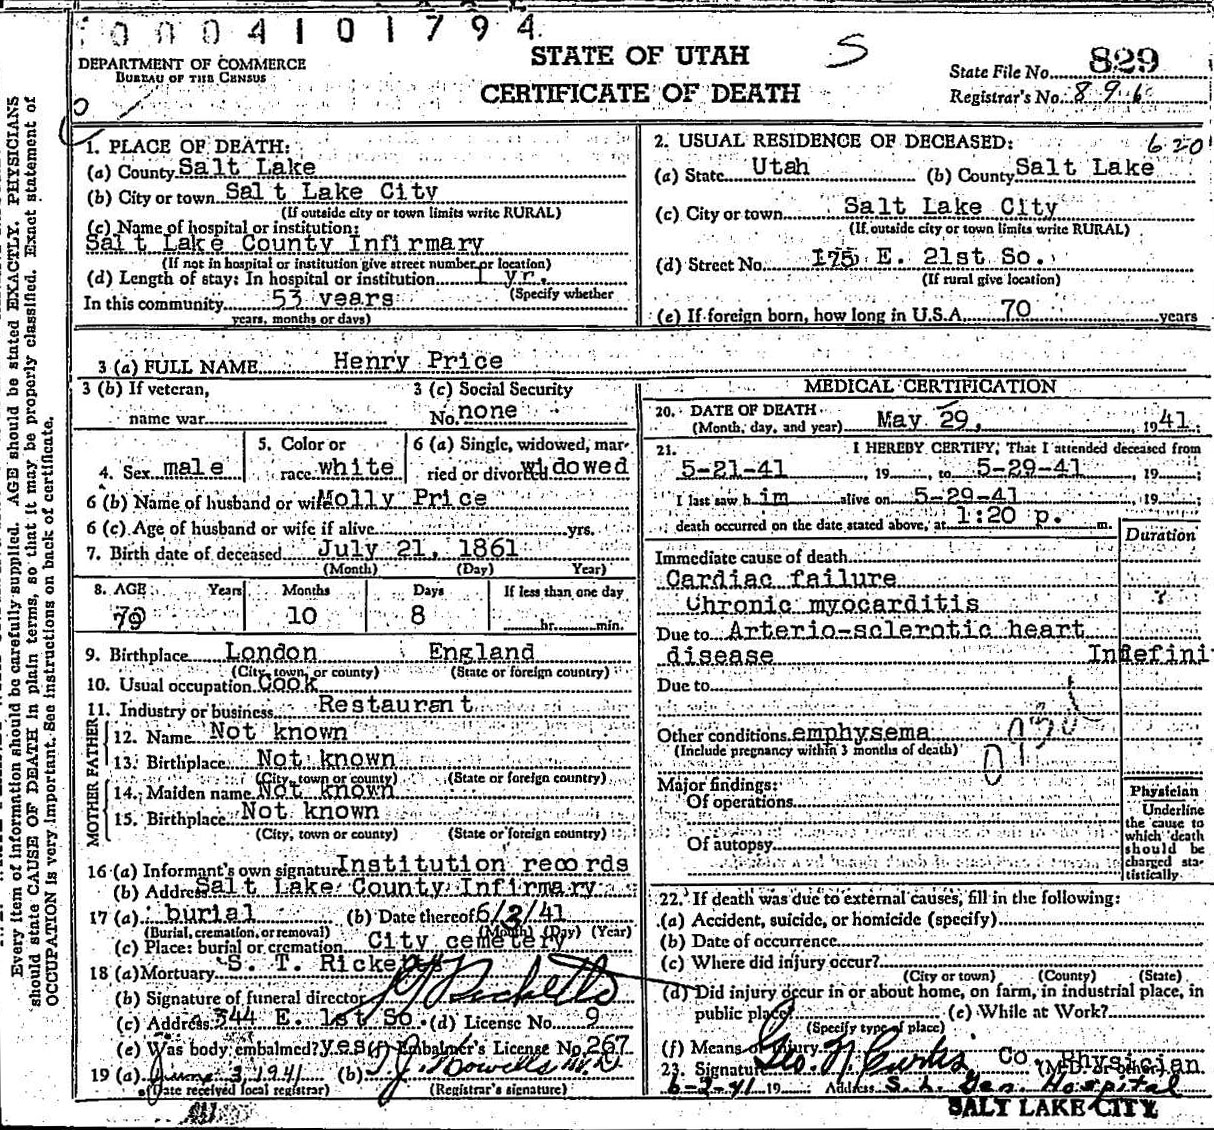 0004101794
DEPARTMENT OF COMMERCE
BUREAU OF THE CENSUS
STATE OF UTAH
CERTIFICATE OF DEATH
S
State File No. 829
Registrar's No. 896
Every item of information should be carefully supplied. AGE should be stated EXACTLY. PHYSICIANS
should state CAUSE OF DEATH in plain terms, so that it may be properly classified. Exact statement of
OCCUPATION is very important. See instructions on back of certificate.
1. PLACE OF DEATH:
(a) County Salt Lake
(b) City or town Salt Lake City
(If outside city or town limits write RURAL)
(c) Name of hospital or institution:
Salt Lake County Infirmary
(If not in hospital or institution give street number or location)
(d) Length of stay: In hospital or institution 1 yr.
(Specify whether
In this community 53 years
years, months or days)
2. USUAL RESIDENCE OF DECEASED: 620
(a) State Utah (b) County Salt Lake
(c) City or town Salt Lake City
(If outside city or town limits write RURAL)
(d) Street No. 175 E. 21st So.
(If rural give location)
(e) If foreign born, how long in U.S.A. 70 years
3 (a) FULL NAME Henry Price
3 (b) If veteran,
name war
3 (c) Social Security
No. none
4. Sex male
5. Color or
race white
6 (a) Single, widowed, mar-
ried or divorced widowed
6 (b) Name of husband or wife Molly Price
6 (c) Age of husband or wife if alive yrs.
7. Birth date of deceased July 21, 1861
(Month) (Day) Year)
8. AGE Years Months Days If less than one day
79 10 8 hr. min.
9. Birthplace London England
(City, town, or county) (State or foreign country)
10. Usual occupation Cook
11. Industry or business Restaurant
FATHER
12. Name Not known
13. Birthplace Not known
(City, town or county) (State or foreign country)
MOTHER
14. Maiden name Not known
15. Birthplace Not known
(City, town or county) (State or foreign country)
16 (a) Informant's own signature Institution records
(b) Address Salt Lake County Infirmary
17 (a) burial (b) Date thereof 6/3/41
(Burial, cremation, or removal) (Month) (Day) (Year)
(c) Place: burial or cremation City cemetery
18 (a) Mortuary S. T. Ricketts
(b) Signature of funeral director Ricketts
(c) Address 344 E. 1st So. (d) License No. 9
(e) Was body embalmed? yes (f) Embalmer's License No. 267
19 (a) June 3 1941 (b) T. J. Howells M.D.
(Date received local registrar) (Registrar's signature)
MEDICAL CERTIFICATION
20. DATE OF DEATH
(Month, day, and year) May 29, 1941.
21. I HEREBY CERTIFY, That I attended deceased from
5-21-41 , 19 , to 5-29-41 , 19 ;
I last saw h im alive on 5-29-41 , 19 ;
death occurred on the date stated above, at 1:20 p. m.
Duration
Immediate cause of death
Cardiac failure
Chronic myocarditis ?
Due to Arterio-sclerotic heart
disease Indefini
Due to
Other conditions emphysema
(Include pregnancy within 3 months of death)
Major findings:
Of operations
Of autopsy
Physician
Underline
the cause to
which death
should be
charged sta-
tistically.
22. If death was due to external causes, fill in the following:
(a) Accident, suicide, or homicide (specify)
(b) Date of occurrence
(c) Where did injury occur?
(City or town) (County) (State)
(d) Did injury occur in or about home, on farm, in industrial place, in
public place? (e) While at Work?
(Specify type of place)
(f) Means of injury
23. Signature Geo. N. Curtis, Co. Physician
(M.D. or other)
6-2-41 19 Address S. L. Gen. Hospital
SALT LAKE CITY